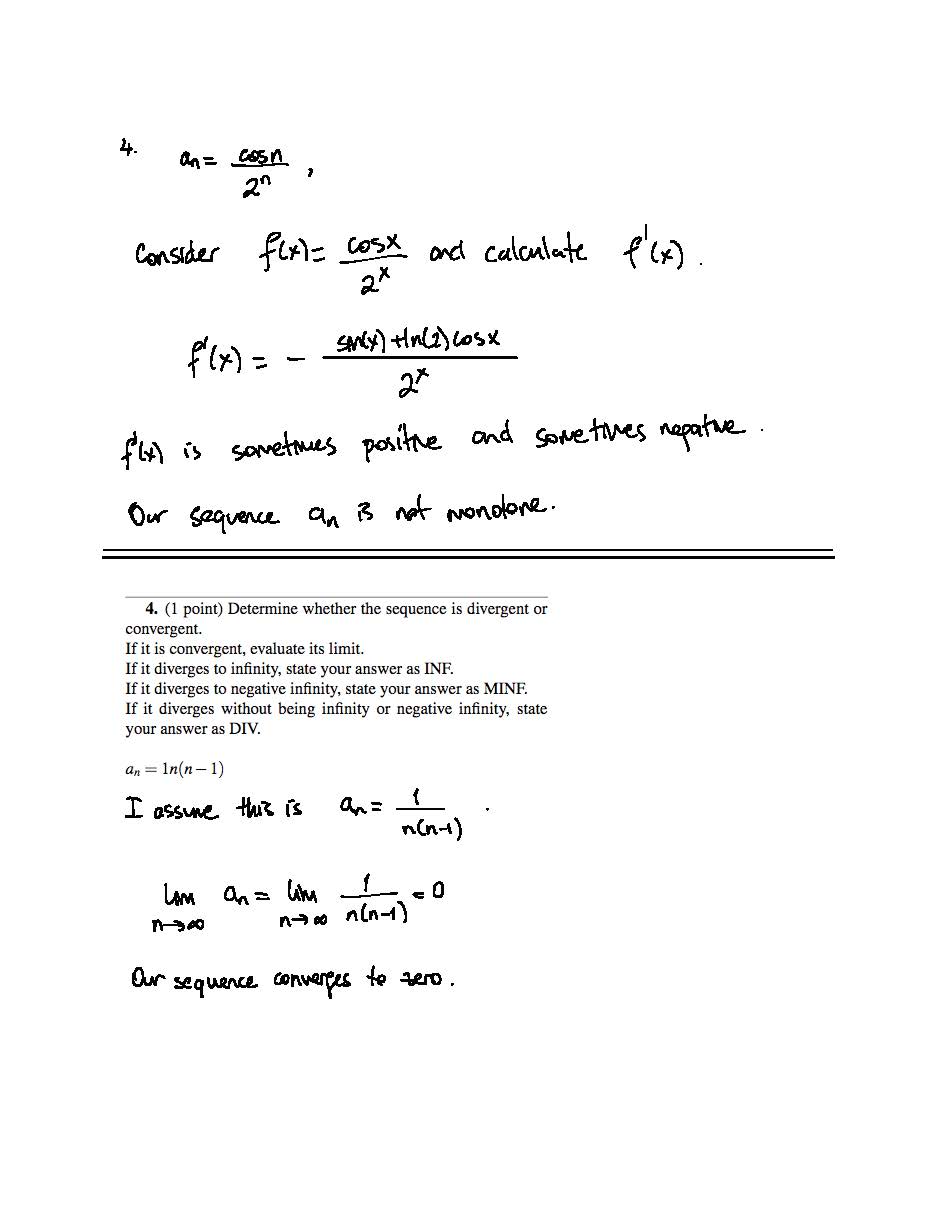 4. aₙ = cos n / 2ⁿ ,
Consider f(x) = cos x / 2ˣ and calculate f'(x) .
f'(x) = - (sin(x) + ln(2) cos x) / 2ˣ
f'(x) is sometimes positive and sometimes negative .
Our sequence aₙ is not monotone.
4. (1 point) Determine whether the sequence is divergent or
convergent.
If it is convergent, evaluate its limit.
If it diverges to infinity, state your answer as INF.
If it diverges to negative infinity, state your answer as MINF.
If it diverges without being infinity or negative infinity, state
your answer as DIV.
aₙ = 1n(n − 1)
I assume this is aₙ = 1 / n(n-1) .
lim n→∞ aₙ = lim n→∞ 1 / n(n-1) = 0
Our sequence converges to zero .